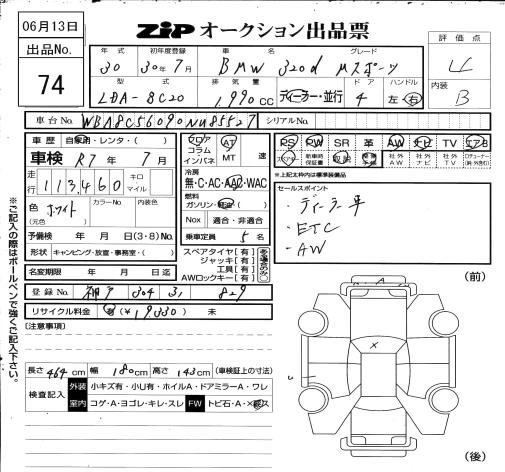 06月13日
ZIP オークション出品票
出品No.
74
年式 初年度登録 車名 グレード
30 30年7月 BMW 320d Mスポーツ
型式 排気量 ドア ハンドル
LDA-8C20 1,990cc ディーラー・並行 4 左・右
評価点
4
内装
B
車台No. WBA8C56090NU85527 シリアルNo.
車歴 自家用・レンタ・( )
車検 R7年 7月
走行 113,460 キロ マイル
色 ホワイト カラーNo. 内装色
(元色)
予備検 年 月 日(3・8)No.
形状 キャンピング・放宣・事務室・( )
名変期限 年 月 日迄
フロア コラム インパネ AT MT 速
冷房
無・C・AC・AAC・WAC
燃料
ガソリン・軽油・( )
Nox 適合・非適合
乗車定員 5名
スペアタイヤ[有]
ジャッキ[有]
工具[有]
AWロックキー[有]
PS PW SR 革 AW ナビ TV エアB
スペアキー 新車時保証書 取説 記録簿 社外AW 社外ナビ 社外TV
*上記太枠内は標準装備品
セールスポイント
・ディーラー車
・ETC
・AW
登録No. 神戸 304 31 829
リサイクル料金 有(¥19,330) 未
[注意事項]
長さ 464cm 幅 180cm 高さ 143cm (車検証上の寸法)
検査記入 外装 小キズ有・小凹有・ホイルA・ドアミラーA・ワレ
室内 コゲ・A・ヨゴレ・キレ・スレ FW トビ石・A・×
(前)
(後)
※ご記入の際はボールペンで強くご記入下さい。